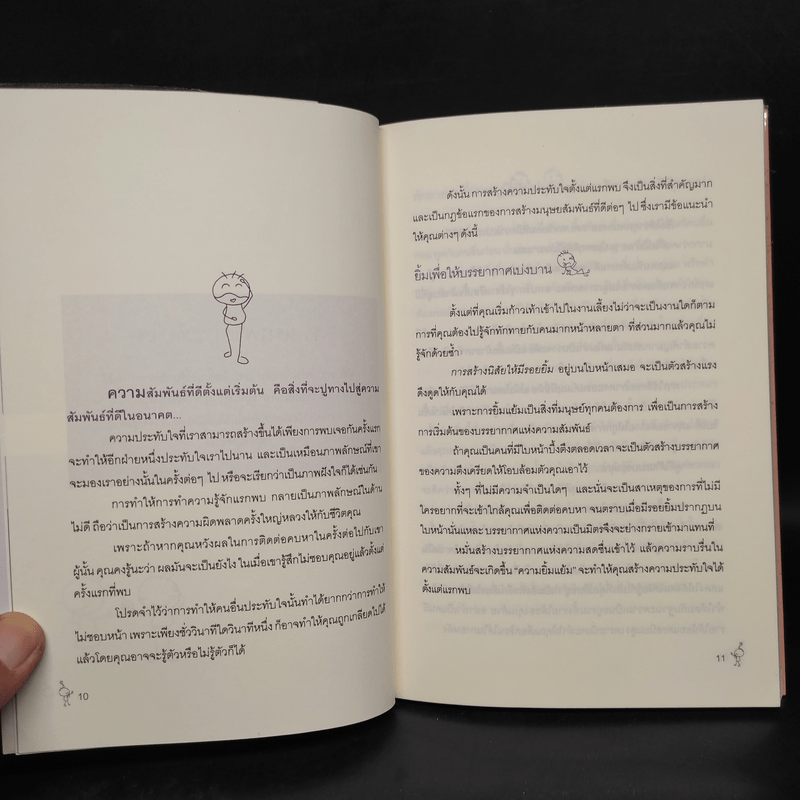 ความสัมพันธ์ที่ดีตั้งแต่เริ่มต้น คือสิ่งที่จะปูทางไปสู่ความ
สัมพันธ์ที่ดีในอนาคต...
ความประทับใจที่เราสามารถสร้างขึ้นได้เพียงการพบเจอกันครั้งแรก
จะทำให้อีกฝ่ายหนึ่งประทับใจเราไปนาน และเป็นเหมือนภาพลักษณ์ที่เขา
จะมองเราอย่างนั้นในครั้งต่อๆ ไป หรือจะเรียกว่าเป็นภาพฝังใจก็ได้เช่นกัน
การทำให้การทำความรู้จักแรกพบ กลายเป็นภาพลักษณ์ในด้าน
ไม่ดี ถือว่าเป็นการสร้างความผิดพลาดครั้งใหญ่หลวงให้กับชีวิตคุณ
เพราะถ้าหากคุณหวังผลในการติดต่อคบหาในครั้งต่อไปกับเขา
ผู้นั้น คุณคงรู้นะว่า ผลมันจะเป็นยังไง ในเมื่อเขารู้สึกไม่ชอบคุณอยู่แล้วตั้งแต่
ครั้งแรกที่พบ
โปรดจำไว้ว่าการทำให้คนอื่นประทับใจนั้นทำได้ยากกว่าการทำให้
ไม่ชอบหน้า เพราะเพียงชั่ววินาทีใดวินาทีหนึ่ง ก็อาจทำให้คุณถูกเกลียดไปได้
แล้วโดยคุณอาจจะรู้ตัวหรือไม่รู้ตัวก็ได้
10
ดังนั้น การสร้างความประทับใจตั้งแต่แรกพบ จึงเป็นสิ่งที่สำคัญมาก
และเป็นกฎข้อแรกของการสร้างมนุษยสัมพันธ์ที่ดีต่อๆ ไป ซึ่งเรามีข้อแนะนำ
ให้คุณต่างๆ ดังนี้
ยิ้มเพื่อให้บรรยากาศเบ่งบาน
ตั้งแต่ที่คุณเริ่มก้าวเท้าเข้าไปในงานเลี้ยงไม่ว่าจะเป็นงานใดก็ตาม
การที่คุณต้องไปรู้จักทักทายกับคนมากหน้าหลายตา ที่ส่วนมากแล้วคุณไม่
รู้จักด้วยซ้ำ
การสร้างนิสัยให้มีรอยยิ้ม อยู่บนใบหน้าเสมอ จะเป็นตัวสร้างแรง
ดึงดูดให้กับคุณได้
เพราะการยิ้มแย้มเป็นสิ่งที่มนุษย์ทุกคนต้องการ เพื่อเป็นการสร้าง
การเริ่มต้นของบรรยากาศแห่งความสัมพันธ์
ถ้าคุณเป็นคนที่มีใบหน้าบึ้งตึงตลอดเวลา จะเป็นตัวสร้างบรรยากาศ
ของความตึงเครียดให้โอบล้อมตัวคุณเอาไว้
ทั้งๆ ที่ไม่มีความจำเป็นใดๆ และนั่นจะเป็นสาเหตุของการที่ไม่มี
ใครอยากที่จะเข้าใกล้คุณเพื่อติดต่อคบหา จนตราบเมื่อมีรอยยิ้มปรากฏบน
ใบหน้านั่นแหละ บรรยากาศแห่งความเป็นมิตรจึงจะย่างกรายเข้ามาแทนที่
หมั่นสร้างบรรยากาศแห่งความสดชื่นเข้าไว้ แล้วความราบรื่นใน
ความสัมพันธ์จะเกิดขึ้น "ความยิ้มแย้ม" จะทำให้คุณสร้างความประทับใจได้
ตั้งแต่แรกพบ
11